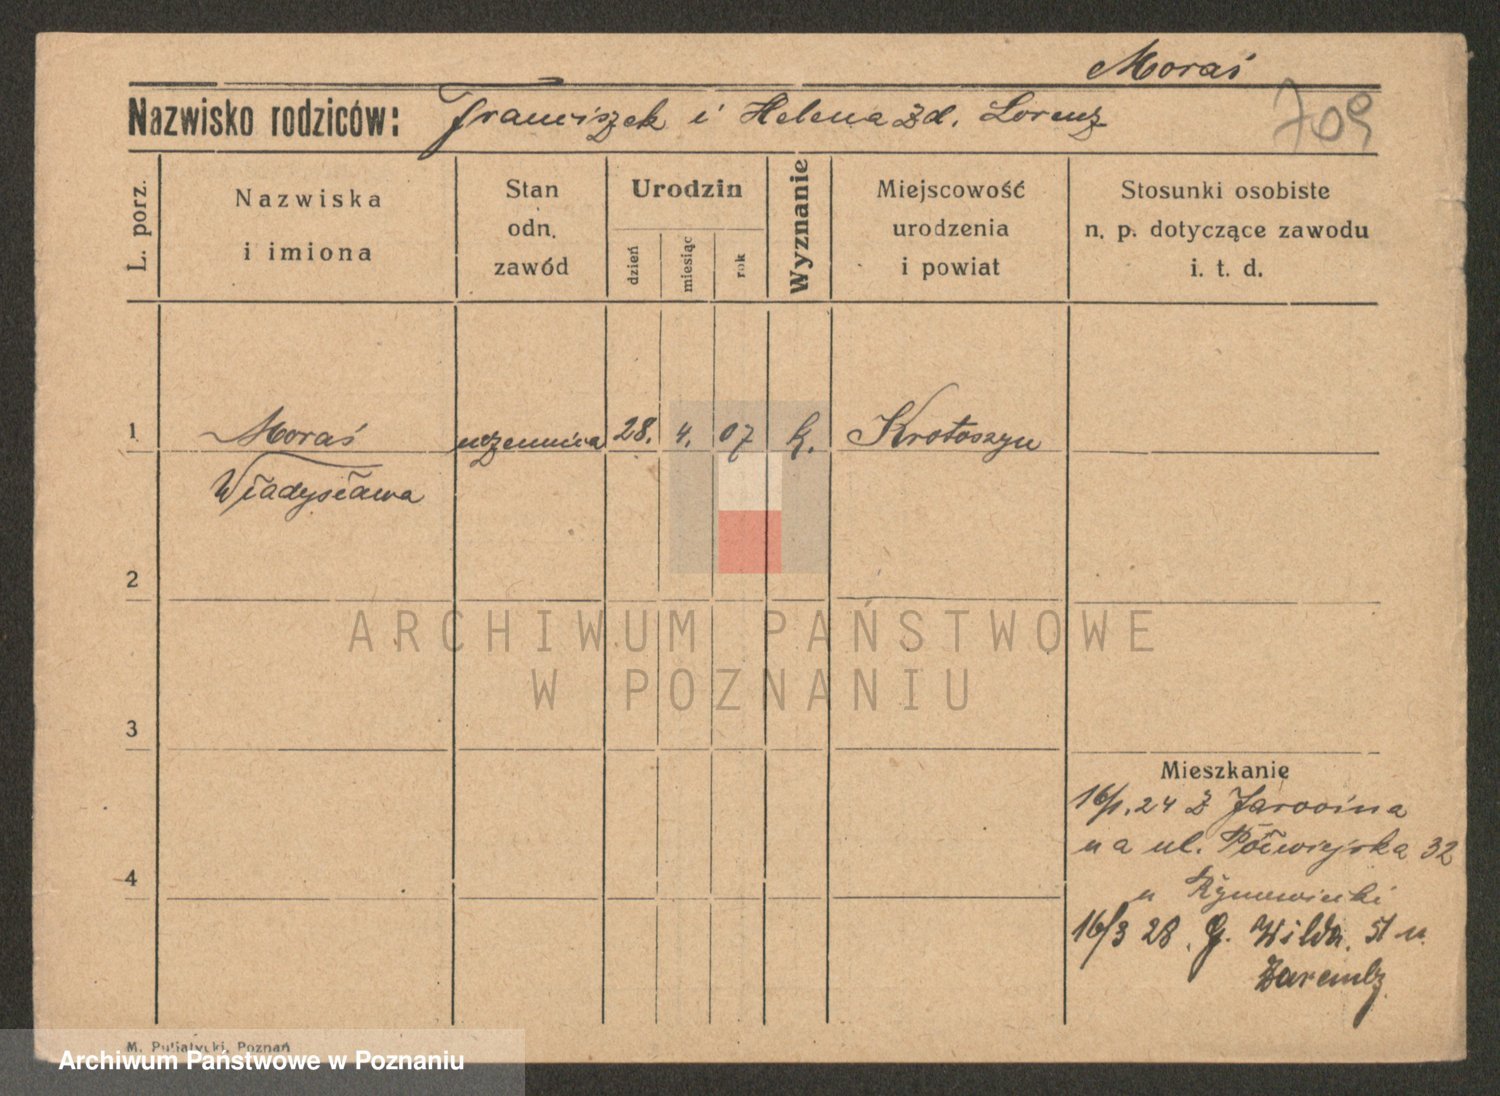 Moraś
Nazwisko rodziców: Franciszek i Helena zd. Lorenz
709
L. porz.
Nazwiska
i imiona
Stan
odn.
zawód
Urodzin
dzień
miesiąc
rok
Wyznanie
Miejscowość
urodzenia
i powiat
Stosunki osobiste
n. p. dotyczące zawodu
i. t. d.
1 Moraś uczennica 28. 4. 07 k. Krotoszyn
Władysława
2
ARCHIWUM PAŃSTWOWE
W POZNANIU
3
Mieszkanie
16/1. 24 z Jarocina
na ul. Półwiejska 32
4
u
16/3 28. G. Wilda. 51 u.
Zaremby
M. Putiatycki, Poznań
Archiwum Państwowe w Poznaniu